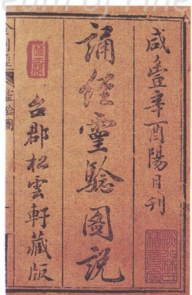 咸豊辛酉陽月刊
誦經靈騐圖説
台郡松雲軒藏版